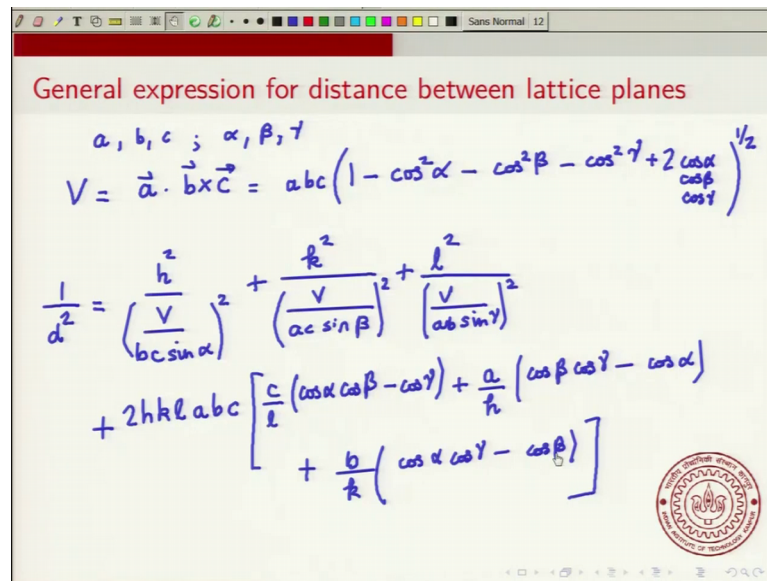 Sans Normal 12
General expression for distance between lattice planes
a, b, c ; α, β, γ
V = a⃗ · b⃗ × c⃗ = abc (1 − cos²α − cos²β − cos²γ + 2 cosα cosβ cosγ)^1/2
1/d² = h²/(V/(bc sin α))² + k²/(V/(ac sin β))² + l²/(V/(ab sin γ))²
+ 2hklabc [ c/l (cosα cosβ − cosγ) + a/h (cosβ cosγ − cosα)
+ b/k (cosα cosγ − cosβ) ]
भारतीय प्रौद्योगिकी संस्थान कानपुर
INDIAN INSTITUTE OF TECHNOLOGY KANPUR